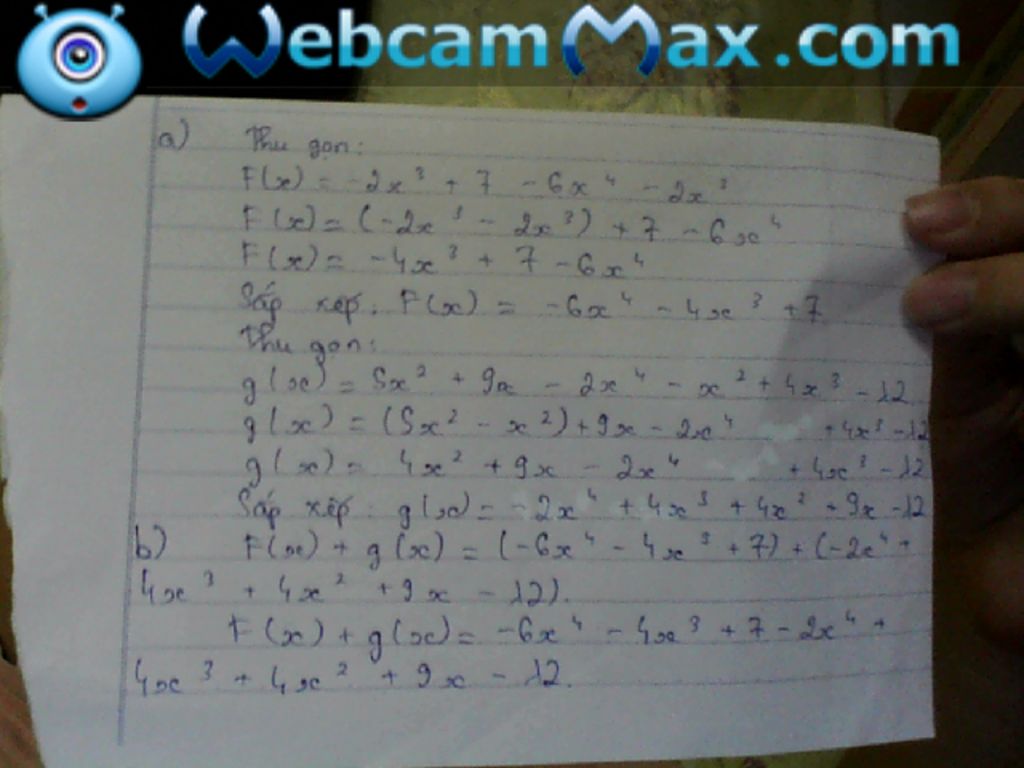 WebcamMax.com
a) Thu gọn:
F(x) = -2x³ + 7 - 6x⁴ - 2x³
F(x) = (-2x³ - 2x³) + 7 - 6x⁴
F(x) = -4x³ + 7 - 6x⁴
Sắp xếp: F(x) = -6x⁴ - 4x³ + 7
Thu gọn:
g(x) = 5x² + 9x - 2x⁴ - x² + 4x³ - 12
g(x) = (5x² - x²) + 9x - 2x⁴ + 4x³ - 12
g(x) = 4x² + 9x - 2x⁴ + 4x³ - 12
Sắp xếp: g(x) = -2x⁴ + 4x³ + 4x² + 9x - 12
b) F(x) + g(x) = (-6x⁴ - 4x³ + 7) + (-2x⁴ +
4x³ + 4x² + 9x - 12).
F(x) + g(x) = -6x⁴ - 4x³ + 7 - 2x⁴ +
4x³ + 4x² + 9x - 12.